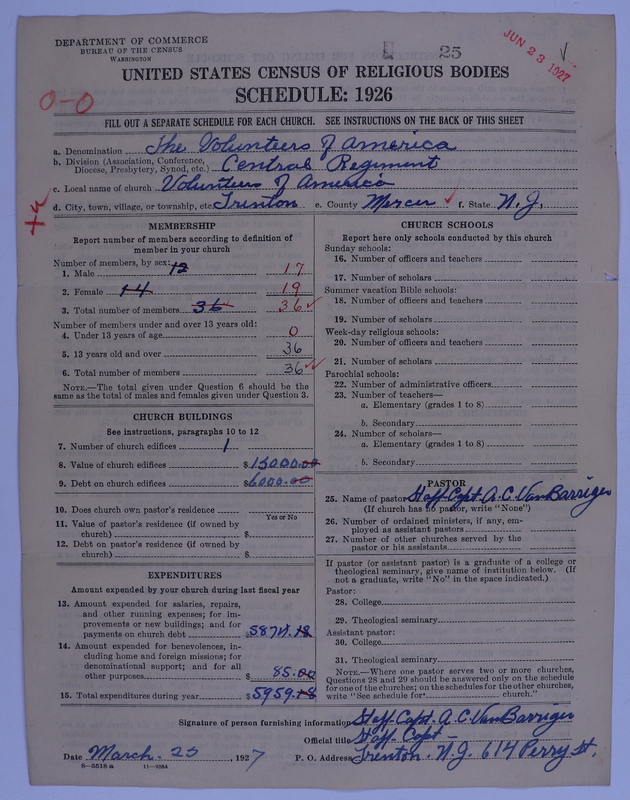 DEPARTMENT OF COMMERCE
BUREAU OF THE CENSUS
WASHINGTON
25
JUN 23 1927
UNITED STATES CENSUS OF RELIGIOUS BODIES
SCHEDULE: 1926
0-0
FILL OUT A SEPARATE SCHEDULE FOR EACH CHURCH. SEE INSTRUCTIONS ON THE BACK OF THIS SHEET
a. Denomination The Volunteers of America
b. Division (Association, Conference, Diocese, Presbytery, Synod, etc.) Central Regiment
c. Local name of church Volunteers of America
d. City, town, village, or township, etc. Trenton e. County Mercer f. State N.J.
MEMBERSHIP
Report number of members according to definition of
member in your church
Number of members, by sex:
1. Male 12 17
2. Female 14 19
3. Total number of members 36 36
Number of members under and over 13 years old:
4. Under 13 years of age 0
5. 13 years old and over 36
6. Total number of members 36
NOTE.—The total given under Question 6 should be the
same as the total of males and females given under Question 3.
CHURCH BUILDINGS
See instructions, paragraphs 10 to 12
7. Number of church edifices 1
8. Value of church edifices $15000.00
9. Debt on church edifices $6000.00
10. Does church own pastor's residence
Yes or No
11. Value of pastor's residence (if owned by
church) $
12. Debt on pastor's residence (if owned by
church) $
EXPENDITURES
Amount expended by your church during last fiscal year
13. Amount expended for salaries, repairs,
and other running expenses; for im-
provements or new buildings; and for
payments on church debt $5874.18
14. Amount expended for benevolences, in-
cluding home and foreign missions; for
denominational support; and for all
other purposes $85.00
15. Total expenditures during year $5959.18
CHURCH SCHOOLS
Report here only schools conducted by this church
Sunday schools:
16. Number of officers and teachers
17. Number of scholars
Summer vacation Bible schools:
18. Number of officers and teachers
19. Number of scholars
Week-day religious schools:
20. Number of officers and teachers
21. Number of scholars
Parochial schools:
22. Number of administrative officers
23. Number of teachers—
a. Elementary (grades 1 to 8)
b. Secondary
24. Number of scholars—
a. Elementary (grades 1 to 8)
b. Secondary
PASTOR
25. Name of pastor Staff-Capt. A. C. VanBarriger
(If church has no pastor, write "None")
26. Number of ordained ministers, if any, em-
ployed as assistant pastors
27. Number of other churches served by the
pastor or his assistants
If pastor (or assistant pastor) is a graduate of a college or
theological seminary, give name of institution below. (If
not a graduate, write "No" in the space indicated.)
Pastor:
28. College
29. Theological seminary
Assistant pastor:
30. College
31. Theological seminary
NOTE.—Where one pastor serves two or more churches,
Questions 28 and 29 should be answered only on the schedule
for one of the churches; on the schedules for the other churches,
write "See schedule for church."
Signature of person furnishing information Staff-Capt. A. C. VanBarriger
Official title Staff-Capt-
Date March 25, 1927 P. O. Address Trenton. N.J. 614 Perry St.
8—5518 a 11—9384